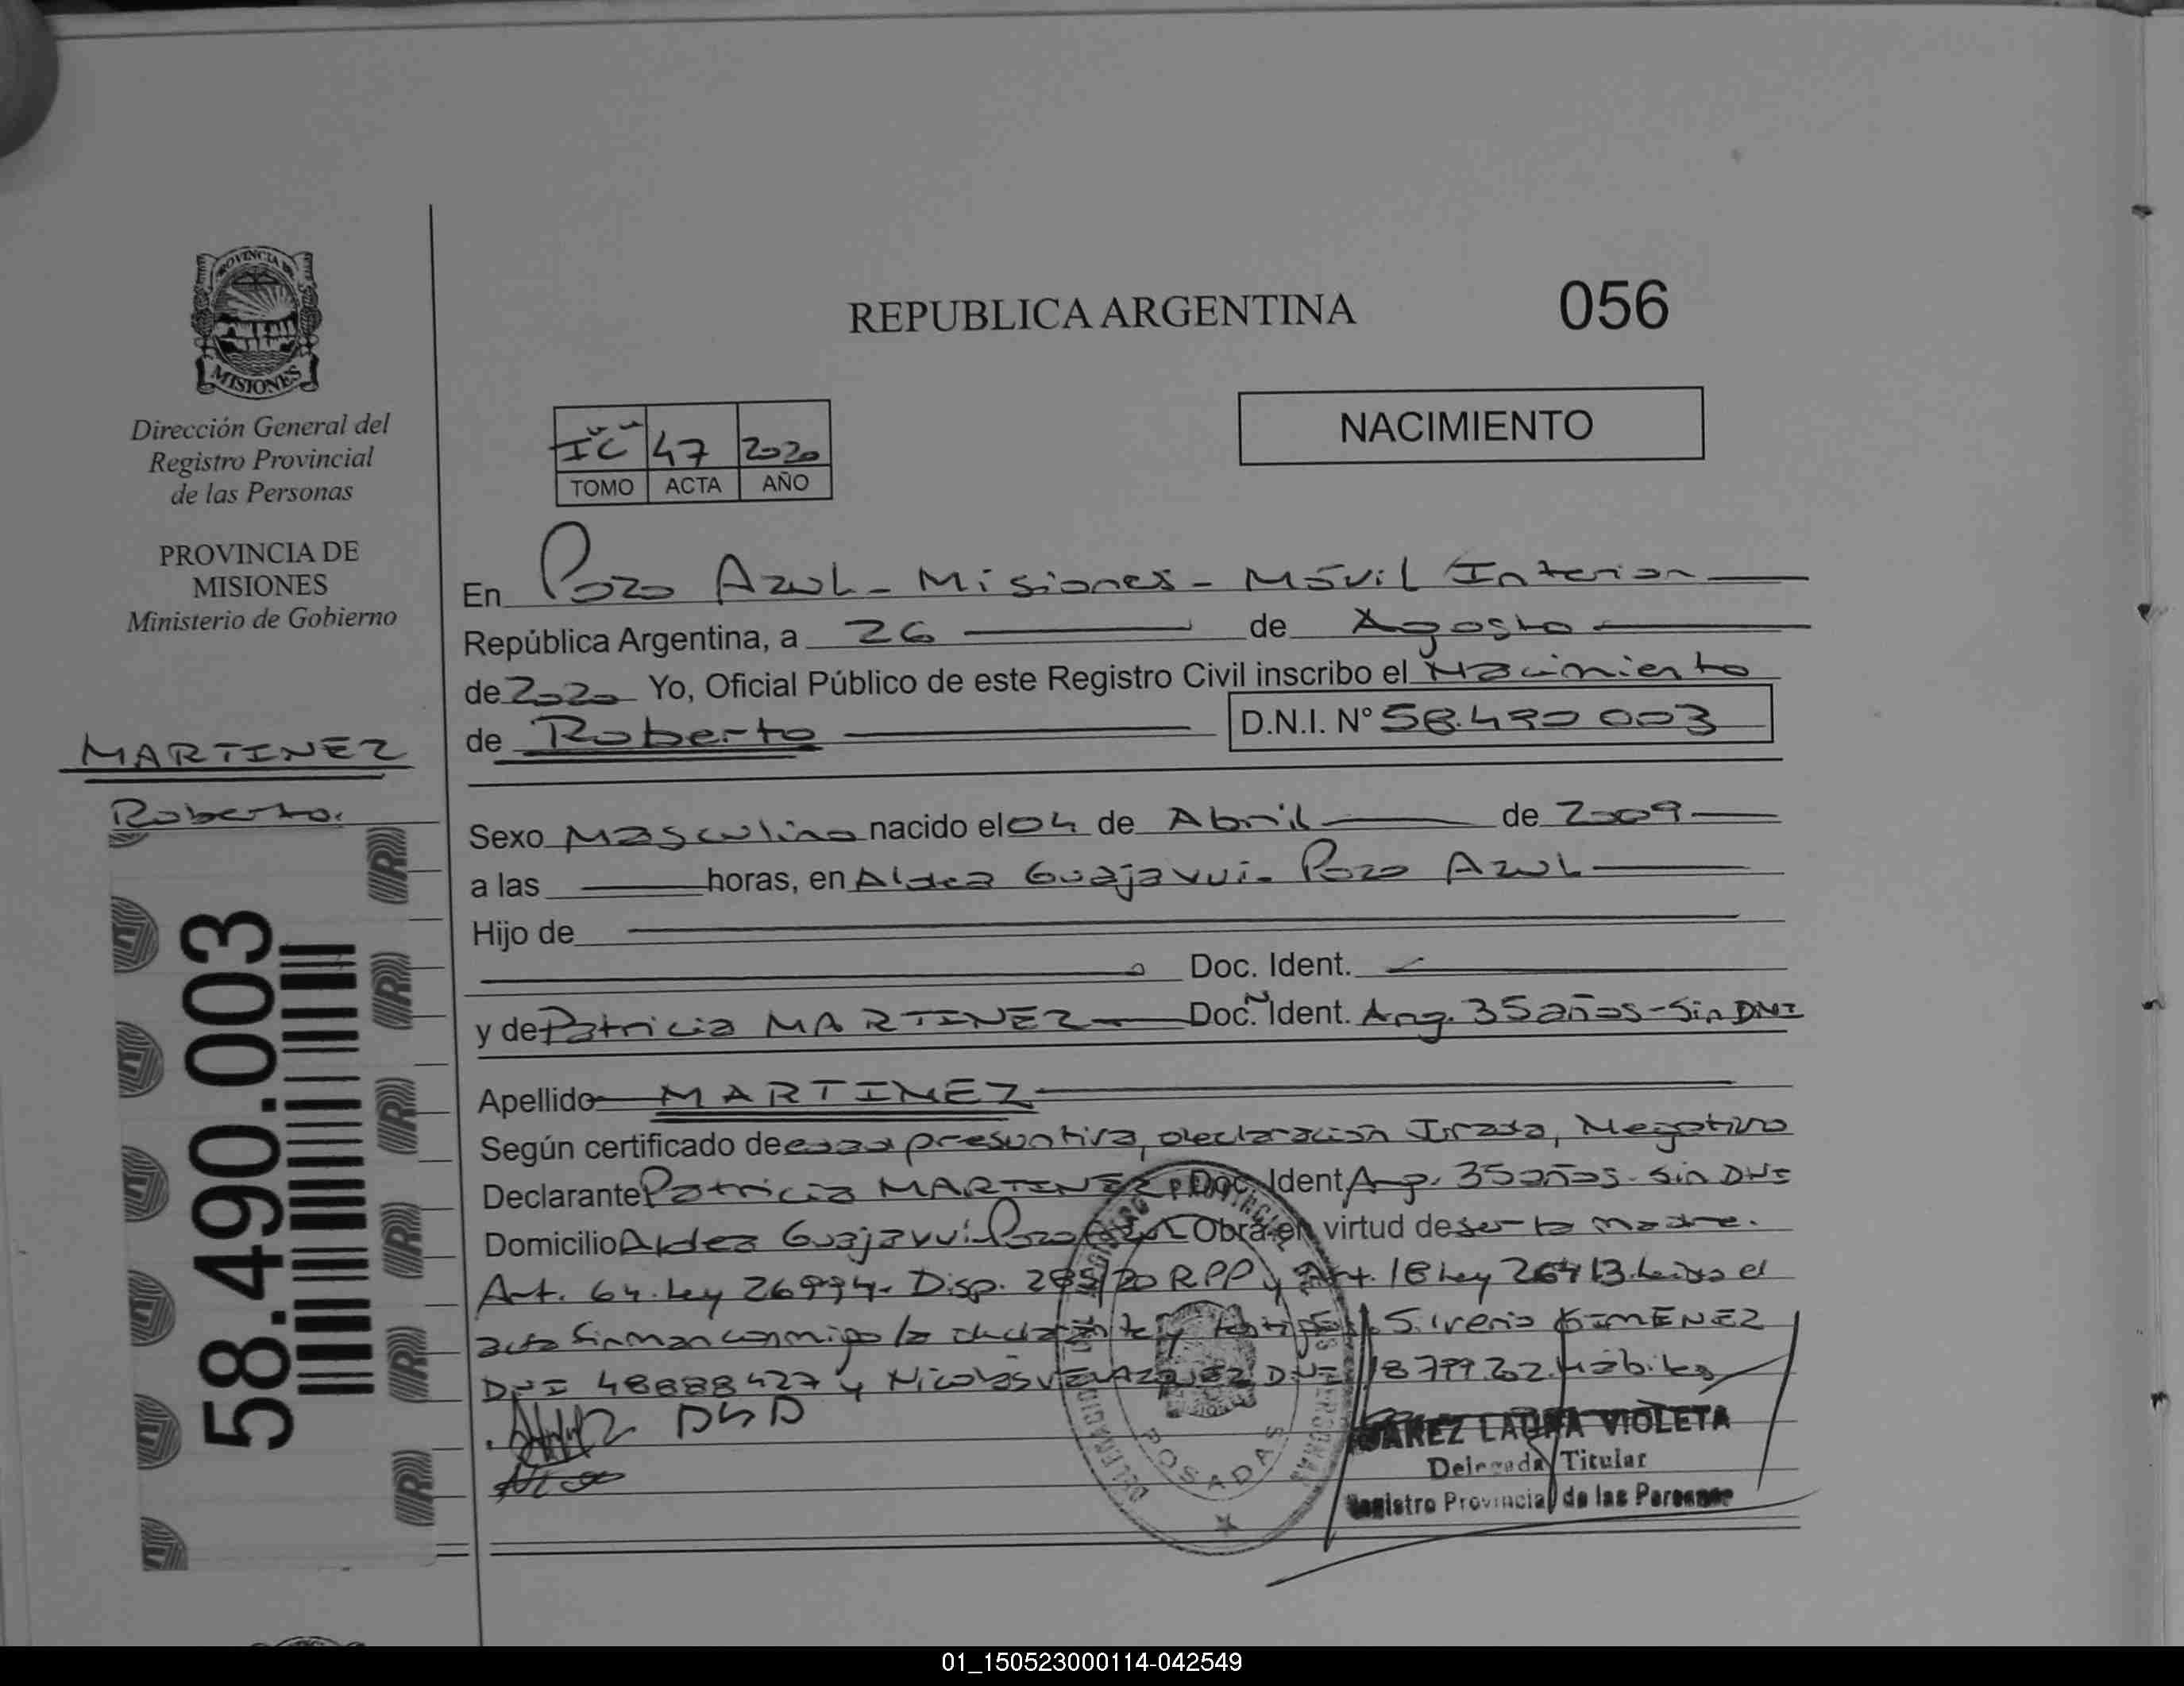 PROVINCIA DE
MISIONES
Dirección General del
Registro Provincial
de las Personas
PROVINCIA DE
MISIONES
Ministerio de Gobierno
MARTINEZ
Roberto.
58.490.003
REPUBLICA ARGENTINA
056
NACIMIENTO
47 2020
TOMO ACTA AÑO
En Pozo Azul - Misiones - Móvil Interior
República Argentina, a 26 de Agosto
de 2020 Yo, Oficial Público de este Registro Civil inscribo el Nacimiento
de Roberto D.N.I. N° 58.490 003
Sexo Masculino nacido el 04 de Abril de 2009
a las horas, en Aldea Guajavui - Pozo Azul
Hijo de
Doc. Ident.
y de Patricia MARTINEZ Doc. Ident. Arg. 35 años - Sin DNI
Apellido MARTINEZ
Según certificado de edad presuntiva, declaración Jurada, Negativo
Declarante Patricia MARTINEZ Doc. Ident Arg. 35 años - Sin DNI
Domicilio Aldea Guajavui - Pozo Azul Obra en virtud de ser la madre.
Art. 64. Ley 26994. Disp. 285/20 RPP y Art. 18 Ley 26413. Leida el
acta firman conmigo la declarante y testigos Silverio GIMENEZ
DNI 48688427 y Nicolás VELAZQUEZ DNI Hábiles
POSADAS
LAURA VIOLETA
Delegada Titular
Registro Provincial de las Personas
01_150523000114-042549